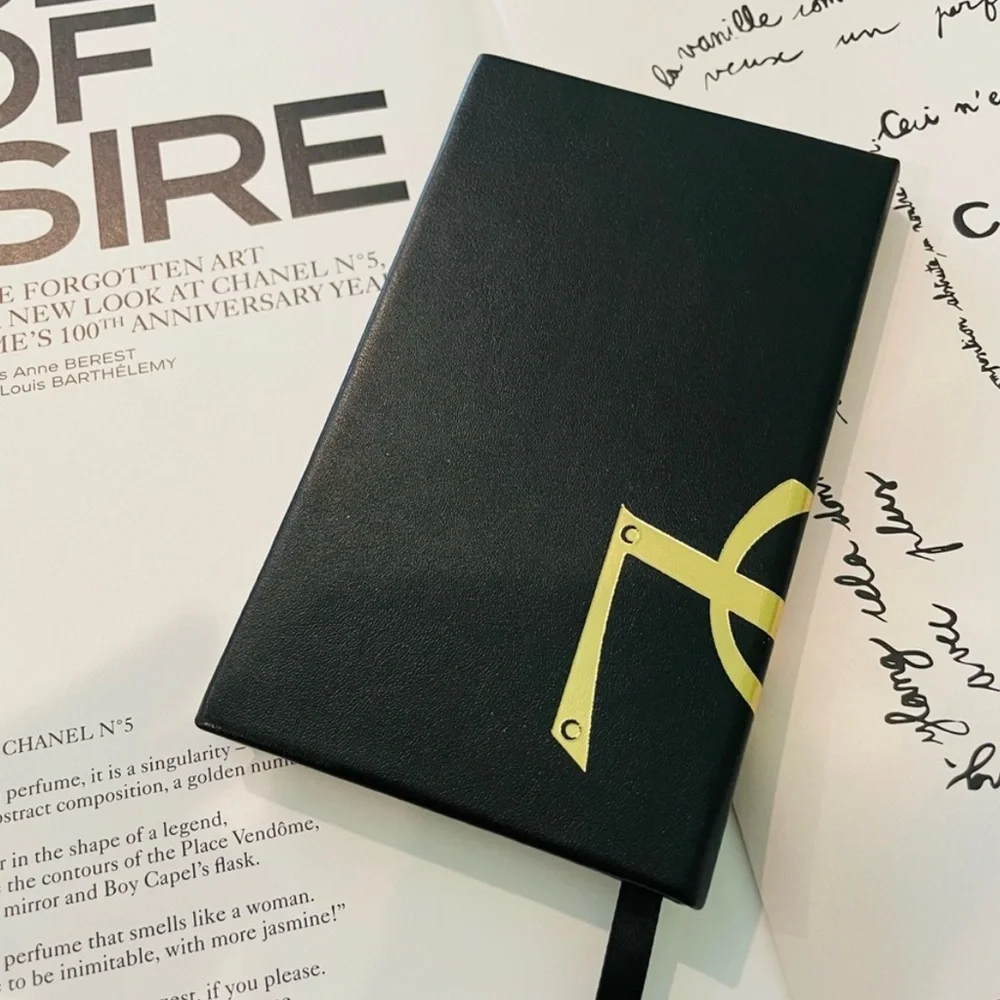 OF
SIRE
E FORGOTTEN ART
NEW LOOK AT CHANEL N°5,
ME'S 100TH ANNIVERSARY YEA
s Anne BEREST
Louis BARTHÉLEMY
CHANEL N°5
perfume, it is a singularity –
stract composition, a golden num
r in the shape of a legend,
the contours of the Place Vendôme,
mirror and Boy Capel's flask.
perfume that smells like a woman.
to be inimitable, with more jasmine!"
est, if you please.
la vanille com
veux un parf
Ceci n'e
C
ylang
avec
plus